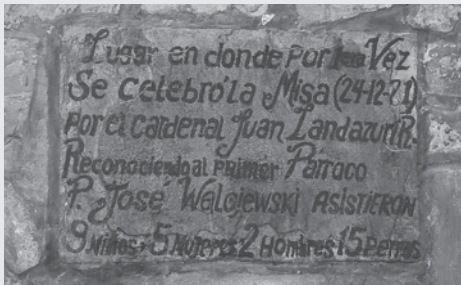 Lugar en donde por 1ra Vez
Se celebró la Misa (24-12-71)
Por el cardenal Juan Landazuri R.
Reconociendo al primer Párroco
P. José Walojewski ASISTIERON
9 Niños, 5 Mujeres 2 Hombres 15 Perros